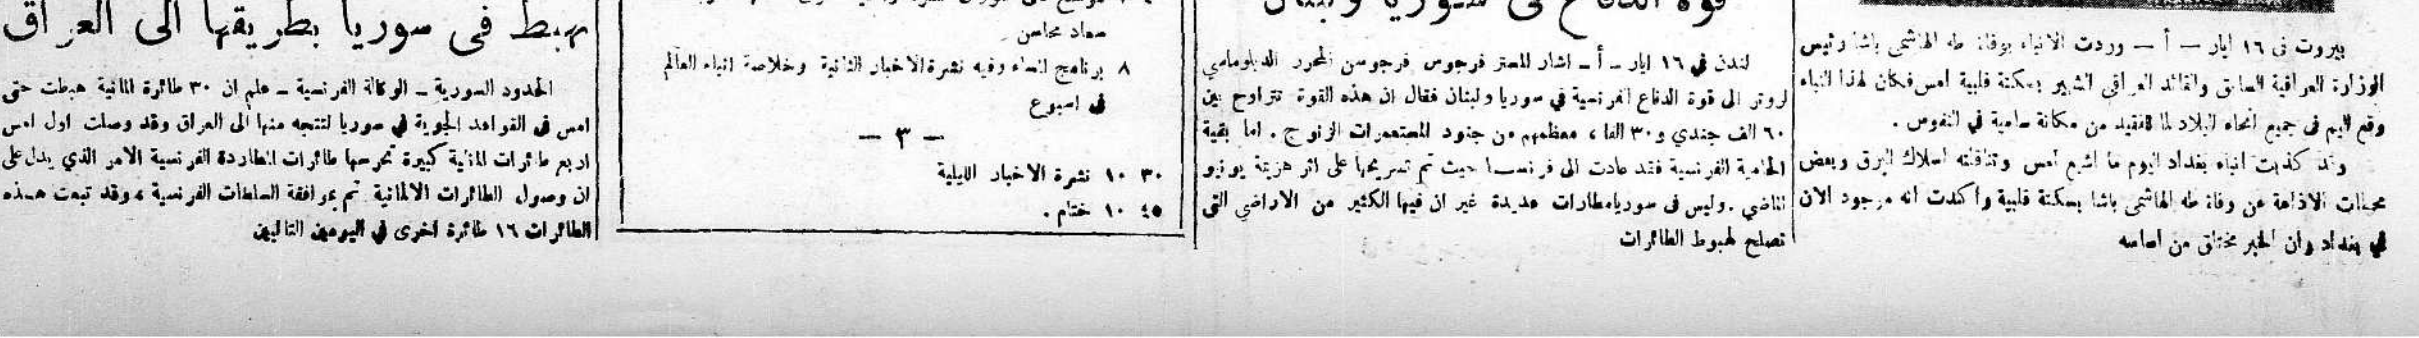 بيروت في ١٦ ايار — أ — وردت الانباء بوفاة طه الهاشمي باشا رئيس
الوزارة العراقية السابق والقائد العراقي الشهير بسكتة قلبية امس فكان لهذا النباء
وقع اليم في جميع انحاء البلاد لما للفقيد من مكانة سامية في النفوس .
وقد كذبت انباء بغداد اليوم ما اشيع امس وتناقلته اسلاك البرق وبعض
محطات الاذاعة عن وفاة طه الهاشمي باشا بسكتة قلبية وأكدت انه موجود الان
في بغداد وان الخبر مختلق من اساسه
قوة الدفاع في سوريا ولبنان
لندن في ١٦ ايار – أ – اشار المستر فرجوس فرجوسن المحرر الدبلوماسي
لروتر الى قوة الدفاع الفرنسية في سوريا ولبنان فقال ان هذه القوة تتراوح بين
٦٠ الف جندي و ٣٠ الفا ، معظمهم من جنود المستعمرات الزنوج . اما بقية
الحامية الفرنسية فقد عادت الى فرنسا حيث تم تسريحها على اثر هزيمة يونيو
الماضي . وليس في سوريا مطارات عديدة غير ان فيها الكثير من الاراضي التي
تصلح لهبوط الطائرات
سعاد محاسن
٨ برنامج المساء وفيه نشرة الاخبار الثانية وخلاصة انباء العالم
في اسبوع
— ٣ —
٣٠ ١٠ نشرة الاخبار الليلية
٤٥ ١٠ ختام .
تهبط في سوريا بطريقها الى العراق
الحدود السورية – الوكالة الفرنسية – علم ان ٣٠ طائرة المانية هبطت حتى
امس في القواعد الجوية في سوريا لتتجه منها الى العراق وقد وصلت اول امس
اربع طائرات المانية كبيرة تحرسها طائرات المطاردة الفرنسية الامر الذي يدل على
ان وصول الطائرات الالمانية تم بموافقة السلطات الفرنسية ، وقد تبعت هذه
الطائرات ١٦ طائرة اخرى في اليومين التاليين